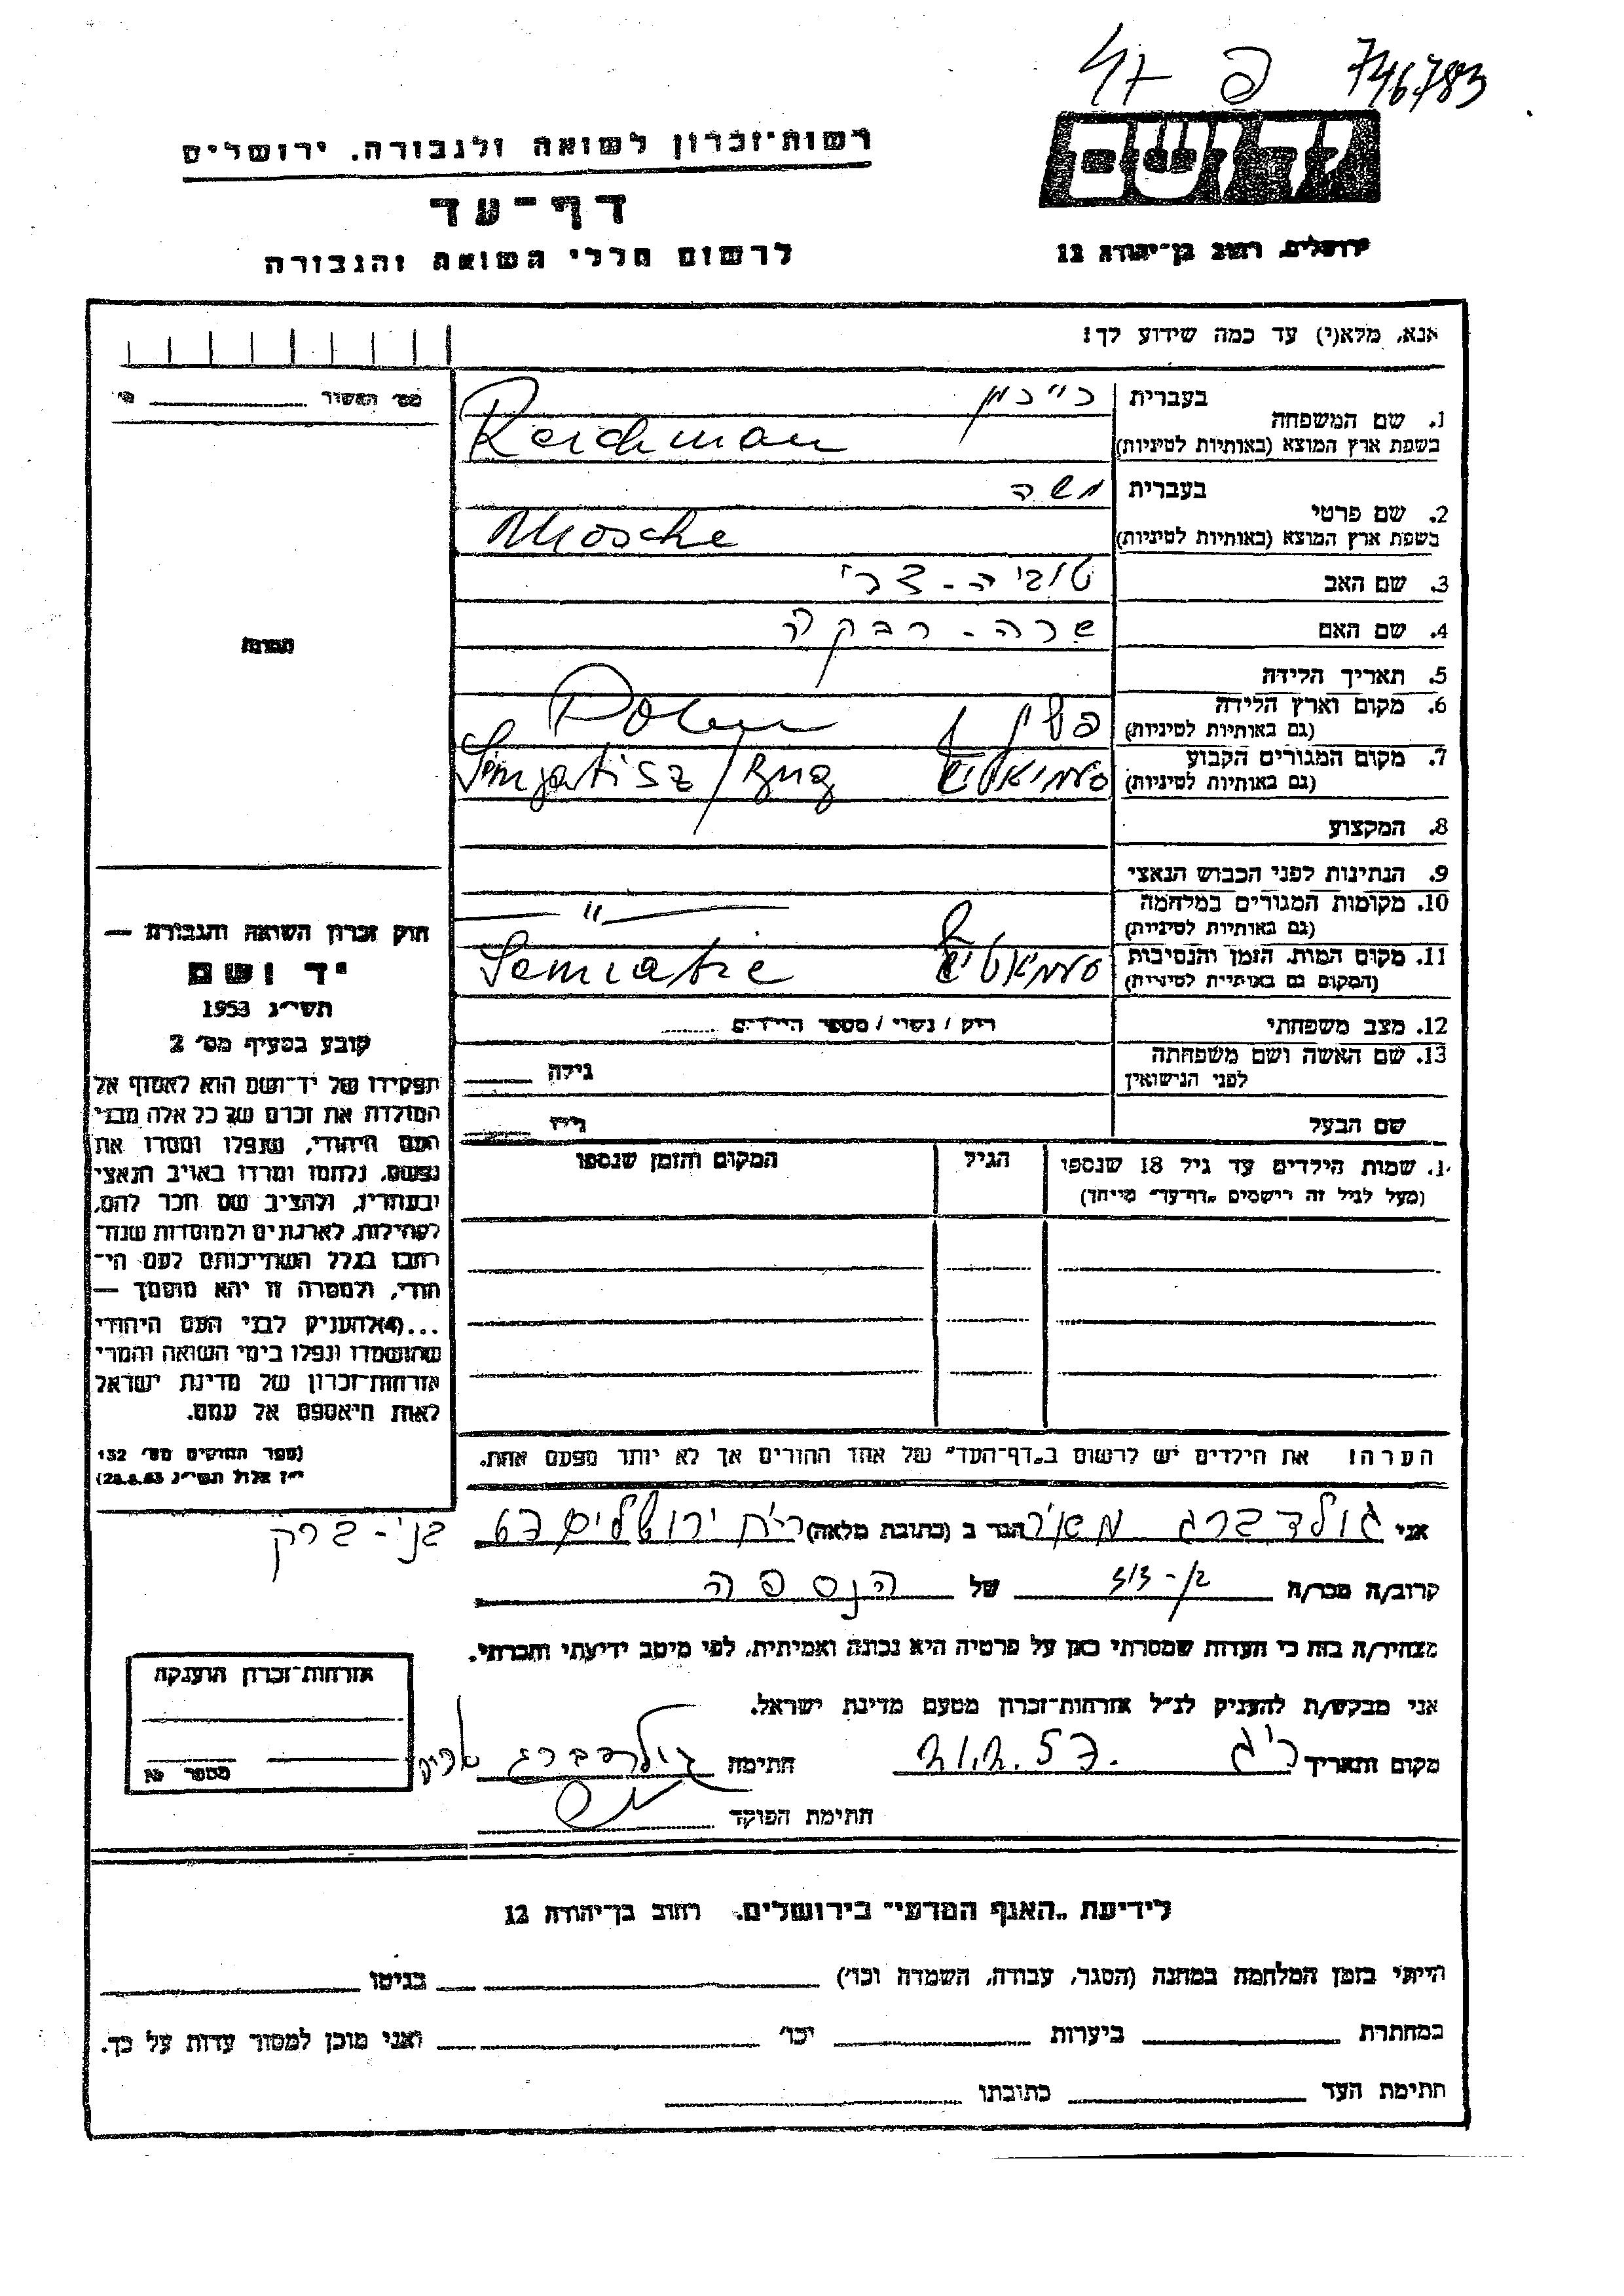 746783
רשות־זכרון לשואה ולגבורה. ירושלים
דף־עד
לרשום חללי השואה והגבורה
יד ושם
ירושלים, רחוב בן־יהודה 12
אנא, מלא(י) עד כמה שידוע לך:
מס' האשור
1. שם המשפחה
בעברית רייכמן
בשפת ארץ המוצא (באותיות לטיניות) Reichman
2. שם פרטי
בעברית משה
בשפת ארץ המוצא (באותיות לטיניות) Mosche
3. שם האב טוביה - צבי
4. שם האם שרה - רבקה
תמונה
5. תאריך הלידה
6. מקום וארץ הלידה
(גם באותיות לטיניות) פולין Polen
7. מקום המגורים הקבוע
(גם באותיות לטיניות) סעמיאטיש Simjatisz / Bug
8. המקצוע
9. הנתינות לפני הכבוש הנאצי
10. מקומות המגורים במלחמה
(גם באותיות לטיניות) — " —
11. מקום המות, הזמן והנסיבות
(המקום גם באותיות לטיניות) סעמיאטיש Semiatie
12. מצב משפחתי רוק / נשוי / מספר הילדים
13. שם האשה ושם משפחתה
לפני הנישואין גילה
שם הבעל גילו
1. שמות הילדים עד גיל 18 שנספו הגיל המקום והזמן שנספו
(מעל לגיל זה רישמים „דף־עד" מייחד)
הערה: את הילדים יש לרשום ב„דף־העד" של אחד ההורים אך לא יותר מפעם אחת.
חוק זכרון השואה והגבורה —
יד ושם
תשי״ג 1953
קובע בסעיף מס' 2
תפקידו של יד־ושם הוא לאסוף אל
המולדת את זכרם של כל אלה מבני
העם היהודי, שנפלו ומסרו את
נפשם, נלחמו ומרדו באויב הנאצי
ובעוזריו, ולהציב שם וזכר להם,
לקהילות, לארגונים ולמוסדות שנח־
רבו בגלל השתייכותם לעם הי־
הודי, ולמטרה זו יהא מוסמך —
...(4)להעניק לבני העם היהודי
שהושמדו ונפלו בימי השואה והמרי
אזרחות־זכרון של מדינת ישראל
לאות היאספם אל עמם.
(ספר החוקים מס' 132
י״ז אלול תשי״ג 28.8.53)
אני גולדברג מאיר הגר ב (כתובת מלאה) רח' ירושלים 67 בני - ברק
קרוב/ה מכר/ה בן - דוד של הנספה
מצהיר/ה בזה כי העדות שמסרתי כאן על פרטיה היא נכונה ואמיתית, לפי מיטב ידיעתי והכרתי.
אני מבקש/ת להעניק לנ״ל אזרחות־זכרון מטעם מדינת ישראל.
מקום ותאריך חתימה גולדברג מאיר
חתימת הפוקד
אזרחות־זכרון הוענקה
מספר
לידיעת „האגף המדעי" בירושלים, רחוב בן־יהודה 12
הייתי בזמן המלחמה במחנה (הסגר, עבודה, השמדה וכו') בגיטו
במחתרת ביערות וכו' ואני מוכן למסור עדות על כך.
חתימת העד כתובתו